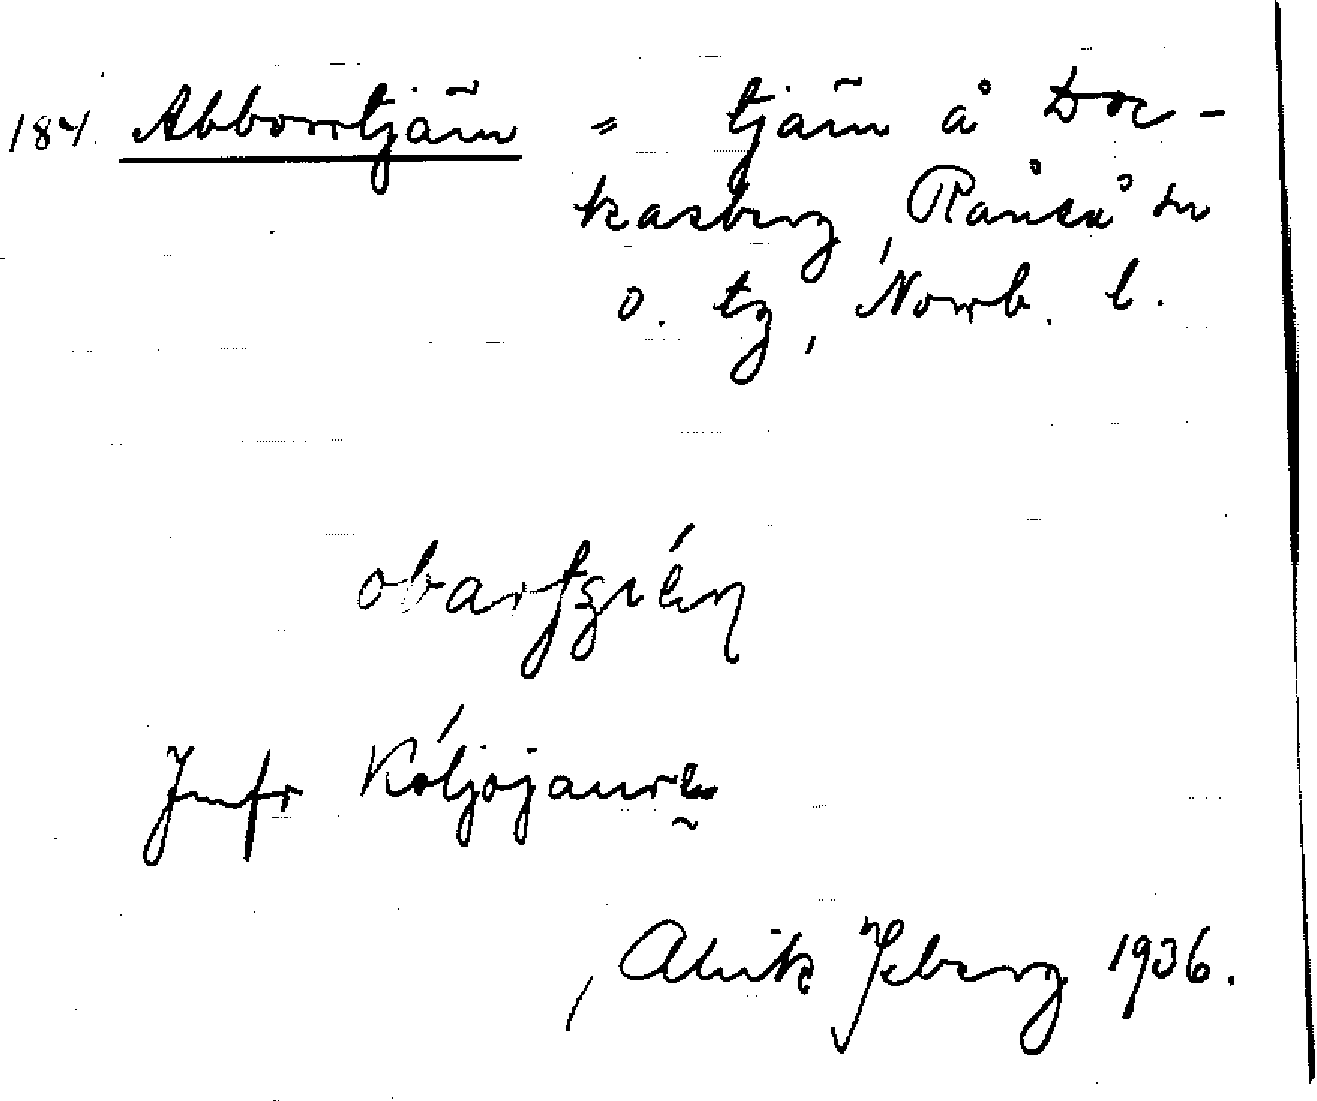 184. Abborrtjärn = tjärn å Doc-
kasberg, Råneå sn
o. tg, Norrb. l.
Jmfr Kóljojaure
Alrik Isberg 1936.